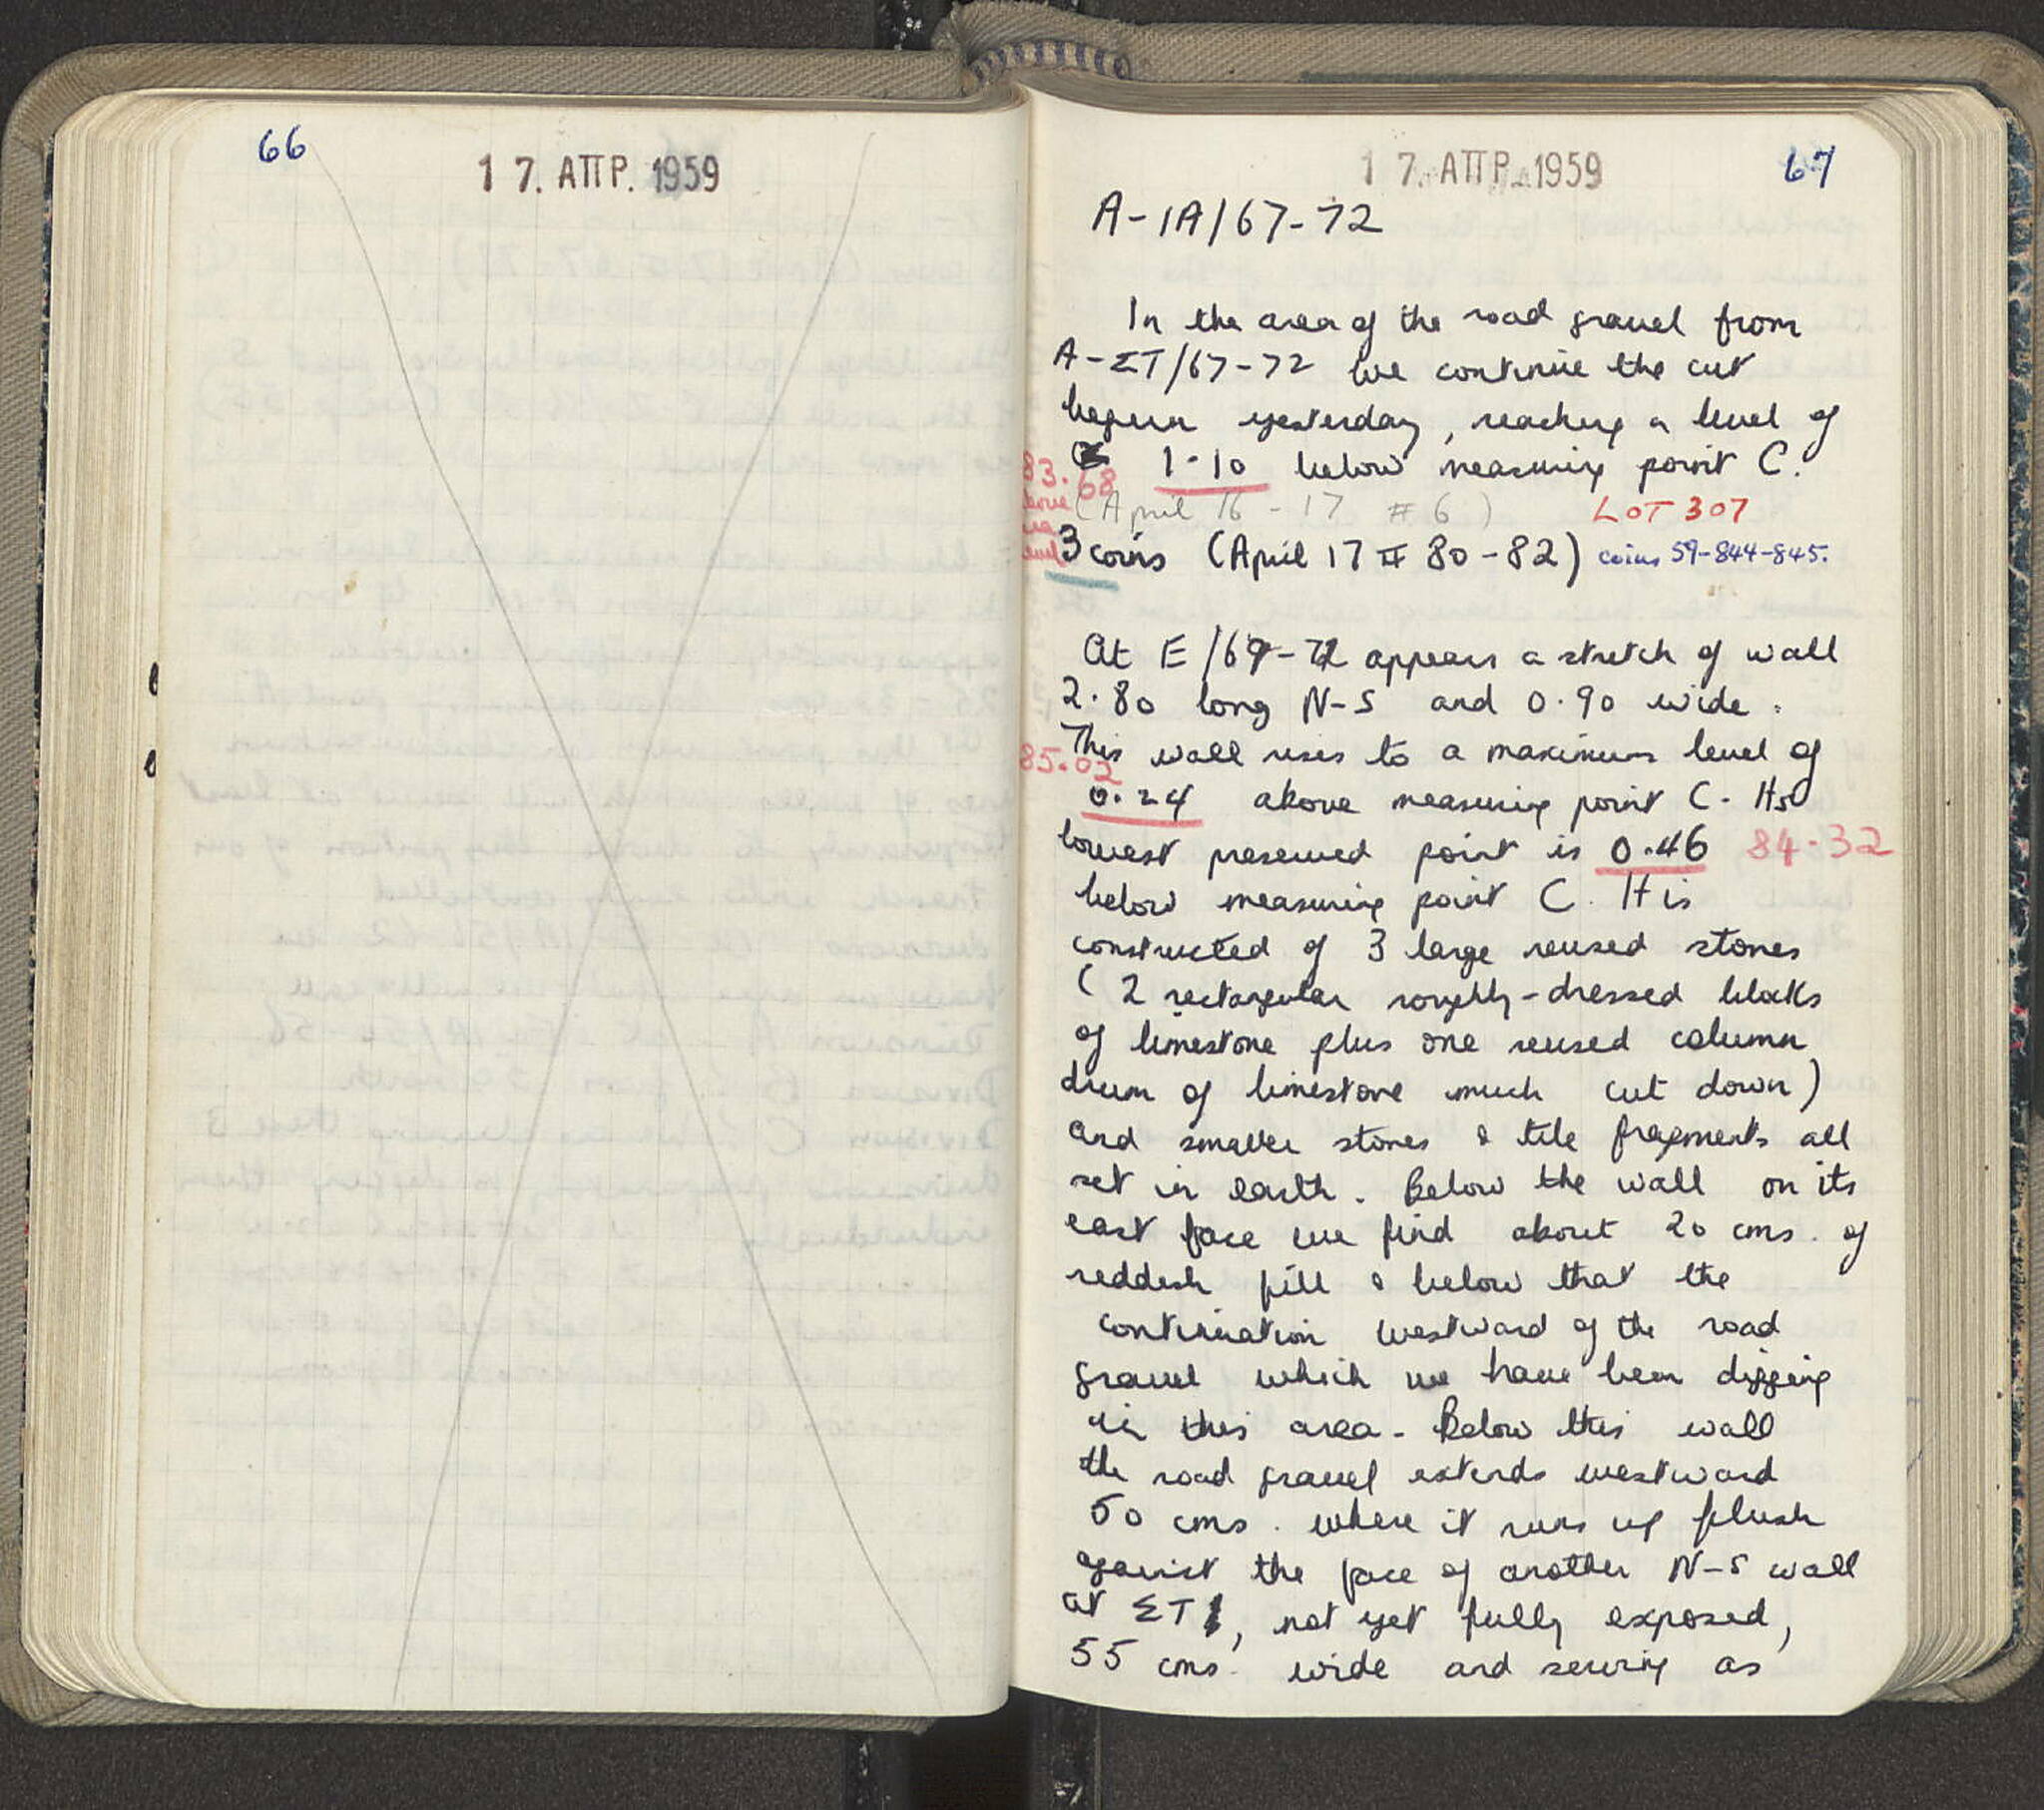 66
17. ΑΠΡ. 1959
17. ΑΠΡ. 1959
67
A-IA/67-72
In the area of the road gravel from
A-ΣT/67-72 we continue the cut
begun yesterday, reaching a level of
1.10 below measuring point C.
83.68
above
sea
level
(April 16-17 #6) LOT 307
3 coins (April 17 # 80-82) coins 59-844-845.
At E/69-72 appears a stretch of wall
2.80 long N-S and 0.90 wide.
This wall rises to a maximum level of
85.02
0.24 above measuring point C. Its
lowest preserved point is 0.46 84.32
below measuring point C. It is
constructed of 3 large reused stones
(2 rectangular roughly-dressed blocks
of limestone plus one reused column
drum of limestone much cut down)
and smaller stones & tile fragments all
set in earth. Below the wall on its
east face we find about 20 cms. of
reddish fill & below that the
continuation westward of the road
gravel which we have been digging
in this area. Below this wall
the road gravel extends westward
50 cms. where it runs up flush
against the face of another N-S wall
at ΣT, not yet fully exposed,
55 cms. wide and serving as